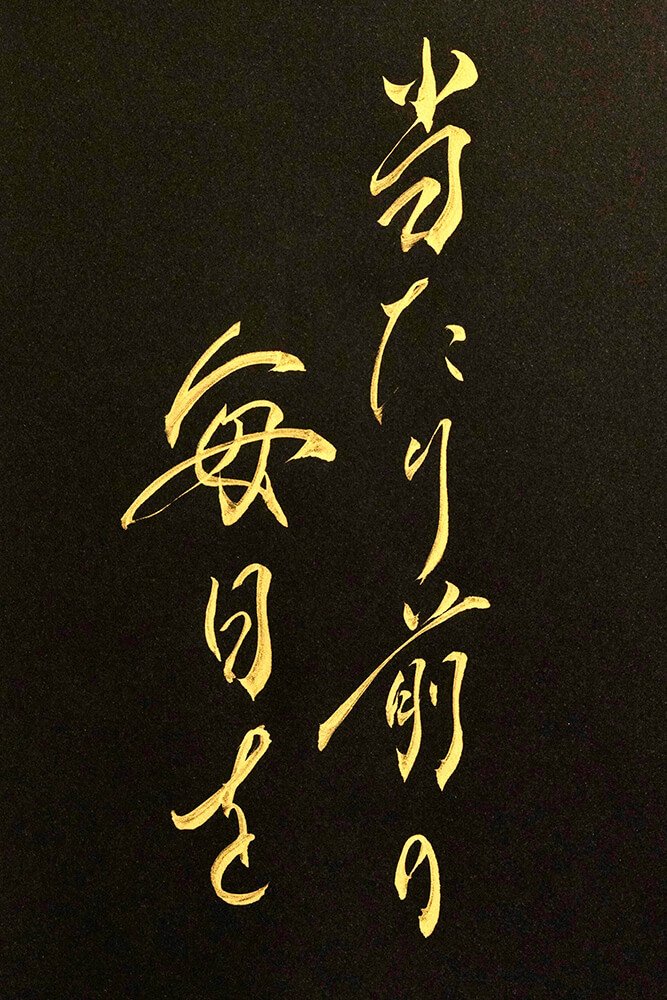 当たり前の
毎日を